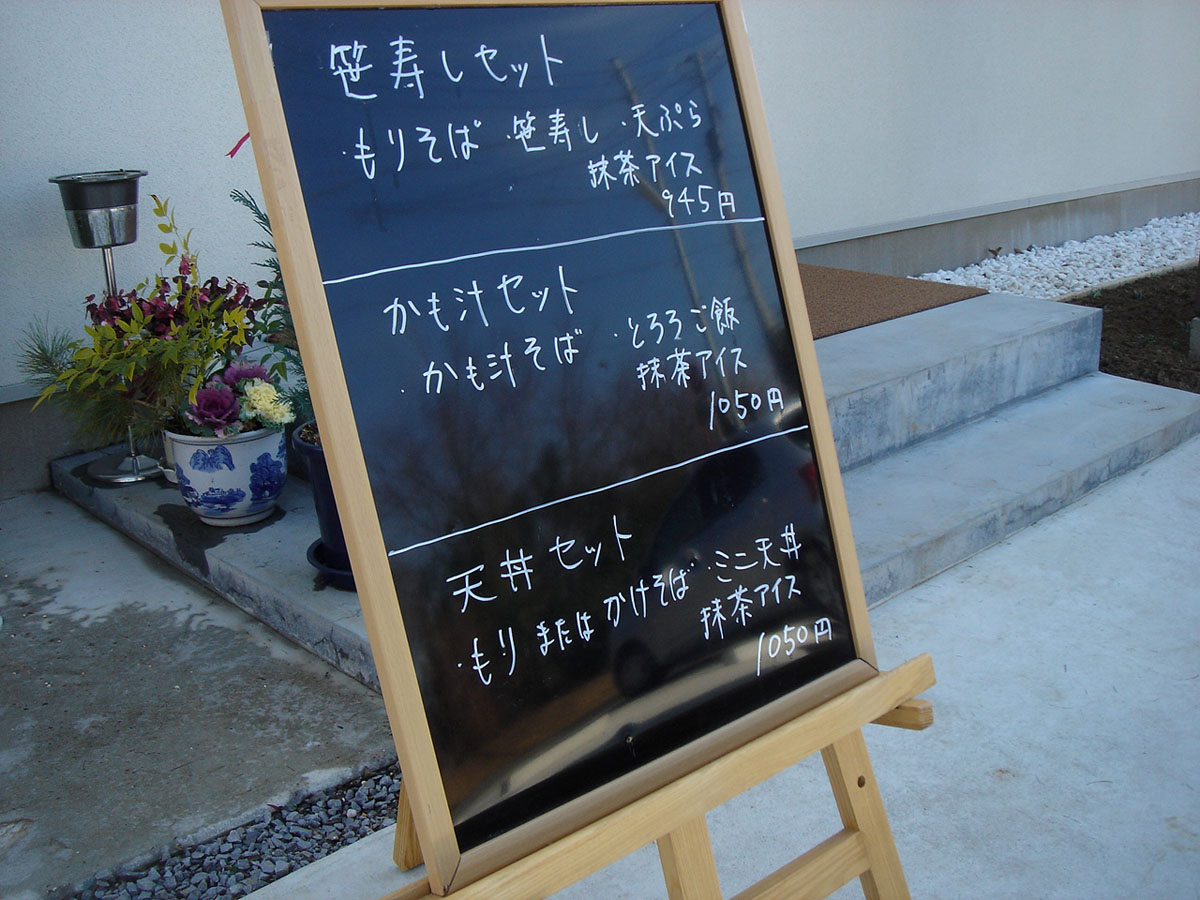 笹寿しセット
・もりそば ・笹寿し ・天ぷら
抹茶アイス
945円
かも汁セット
・かも汁そば ・とろろご飯
抹茶アイス
1050円
天丼セット
・もりまたはかけそば ・ミニ天丼
抹茶アイス
1050円